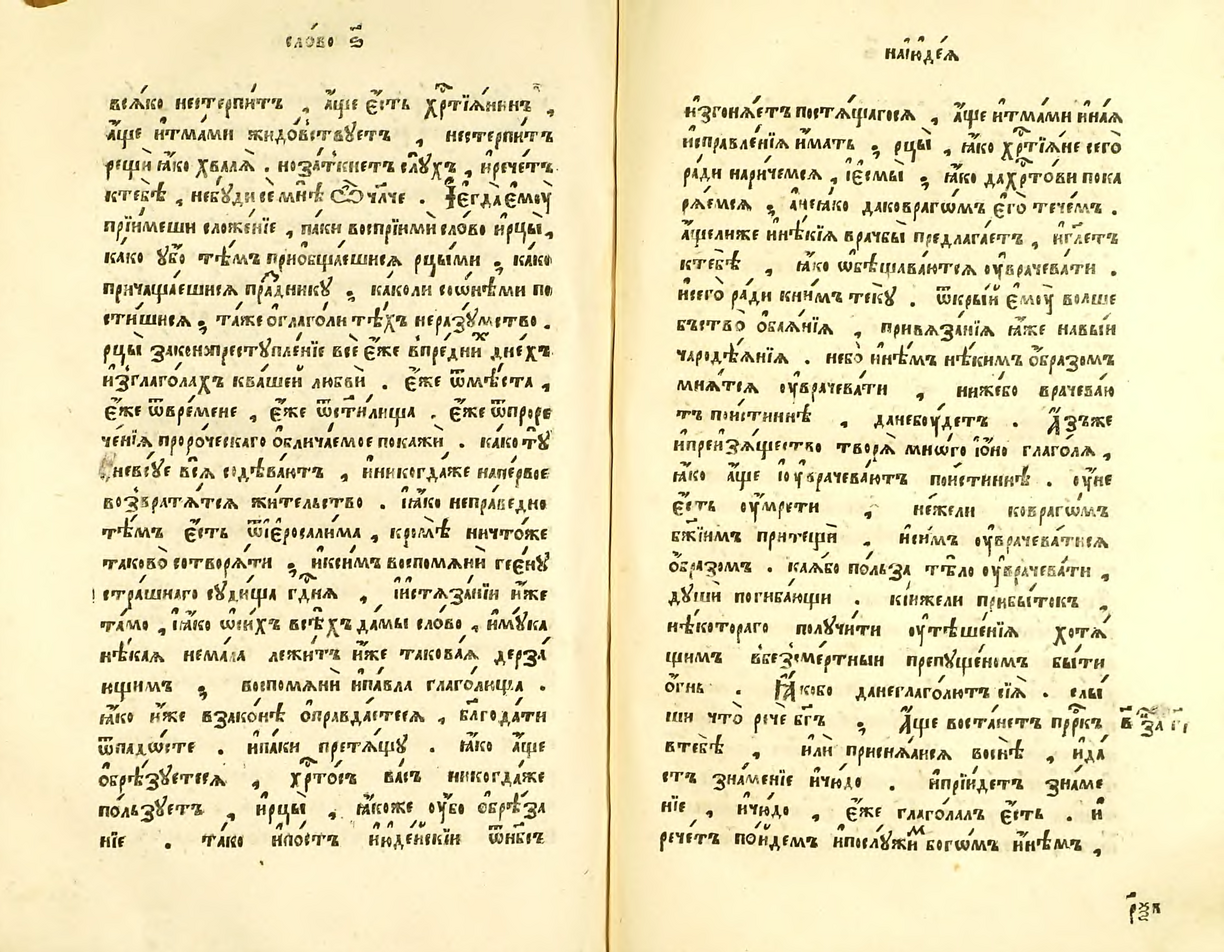 сло́во ѕ҃
всѧ́ко нестерпи́тъ , а҆́ще є҆́сть хр҇тїѧ́нинъ ,
а҆́ще и҆тма́ми жидо́вствꙋетъ , нестерпи́тъ
рещѝ ꙗ҆́ко хва́лѧ . ноза́ткнетъ слꙋ́хъ , и҆рече́тъ
ктебѣ̀ , небꙋ́ди се́ мнѣ̀ ѽ чл҃че . І҆єгда̀ є҆моу̀
прїи́меши сложе́нїе , па́ки воспрїимѝ сло́во и҆рцы̀,
ка́ко ᲂу҆́бо тѣ́мъ приѻбща́ешисѧ рцы́ми ; ка́ко
причаща́ешисѧ пра́здникꙋ ; ка́коли соѡ҆нѣ́ми по
сти́шисѧ ; та́же ѻ҆глаго́ли тѣ́хъ неразꙋ́мство .
рцы̀ законопрестꙋпле́нїе всѐ є҆́же впре́днихъ дне́хъ
и҆зглаго́лахъ ква́шей любвѝ . є҆́же ѿмѣ́ста ,
є҆́же ѿвре́мене , є҆́же ѿст҃и́лища . є҆́же ѿпроре
че́нїѧ проро́ческаго ѻ҆блича́емое покажѝ . ка́ко тꙋ́
невсꙋ́е всѧ̀ содѣ́ваютъ , и҆никогда́же напе́рвое
возвратѧ́тсѧ жи́тельство . і҆ꙗ́ко непра́ведно
тѣ́мъ є҆́сть ѿі҆єросали́ма , кромѣ̀ ничто́же
таково̀ сотворѧ́ти ; и҆ксимъ воспомѧнѝ гее́нꙋ
стра́шнаго сꙋди́ща гд҇нѧ , и҆стѧза́нїи и҆̀же
та́мо , і҆ꙗ́ко ѡ҆си́хъ всѣ́хъ да́мы сло́во , и҆мꙋ́ка
нѣ́каѧ нема́ла лежи́тъ и҆̀же такова́ѧ дерза́
ющимъ ; воспомѧнѝ и҆па́вла глаго́люща .
ꙗ҆́ко и҆̀же взако́нѣ ѻ҆правда́етесѧ , благода́ти
ѿпадо́сте . и҆па́ки претѧ́щꙋ . ꙗ҆́ко а҆́ще
ѻ҆брѣ́зꙋетесѧ , хр҇то́съ ва́съ никогда́же
по́льзꙋетъ , и҆рцы̀ , ꙗ҆́коже ᲂу҆́бо ѻ҆брѣ́за
нїе . та́ко и҆по́стъ и҆юде́йскїи ѿнб҃съ
наїюде́ѧ
и҆згонѧ́етъ постѧ́щагосѧ , а҆́ще и҆тма́ми и҆на́ѧ
и҆справле́нїѧ и҆́мать ; рцы̀ , ꙗ҆́ко хр҇тїѧ́не сего̀
ра́ди нарича́емсѧ , і҆єсмы̀ ; ꙗ҆́ко дахр҇то́ви пока
рѧ́емсѧ ; а҆неꙗ́ко даковраго́мъ є҆гѡ̀ тече́мъ .
а҆́щелиже и҆нѣ́кїѧ врачбы̀ предлага́етъ , и҆гл҃етъ
ктебѣ̀ , ꙗ҆́ко ѡ҆бѣщава́ютсѧ ᲂу҆врачева́ти .
и҆сего̀ ра́ди кни́мъ текꙋ̀ . ѿкры́й є҆моу̀ волше
бьство̀ ѻ҆баѧ́нїѧ , привѧза́нїѧ ꙗ҆́же на́выи
чародѣѧ́нїѧ . не́бо и҆нѣ́мъ нѣ́кимъ ѻ҆́бразомъ
мнѧ́тсѧ ᲂу҆врачева́ти , ниже́бо врачева́ю
тъ пои́стиннѣ , данебоу́детъ . А҆́зъже
и҆преизѧ́щество творѧ̀ мно́го і҆о́но глаго́лѧ ,
ꙗ҆́ко а҆́ще і҆ᲂуврачева́ютъ пои́стиннѣ . ᲂу҆не
є҆́сть ᲂу҆мре́ти , не́жели ковраго́мъ
бж҃їимъ притещѝ . и҆си́мъ ᲂу҆врачева́тисѧ
ѻ҆́бразомъ . ка́ѧбо по́льза тѣ́ло ᲂу҆врачева́ти ,
дꙋшѝ погиба́ющи . кі́ижели прибы́токъ ,
нѣ́котораго получи́ти ᲂу҆тѣше́нїѧ хотѧ́
щимъ вбезсме́ртныи препꙋще́номъ бы́ти
ѻ҆́гнь . Ꙗ҆́кобо данеглаго́лютъ сїѧ̀ . слы́
ши что̀ речѐ бг҃ъ ; А҆́ще воста́нетъ прр҇къ
втебѣ̀ , и҆лѝ присниѧ́исѧ воснѣ̀ , и҆да́
стъ зна́менїе и҆чю́до . и҆прїи́детъ зна́ме
нїе , и҆чю́до , є҆́же глаго́лалъ є҆́сть . и҆
рече́тъ по́идемъ и҆послꙋ́жимъ бого́мъ и҆нѣ́мъ ,